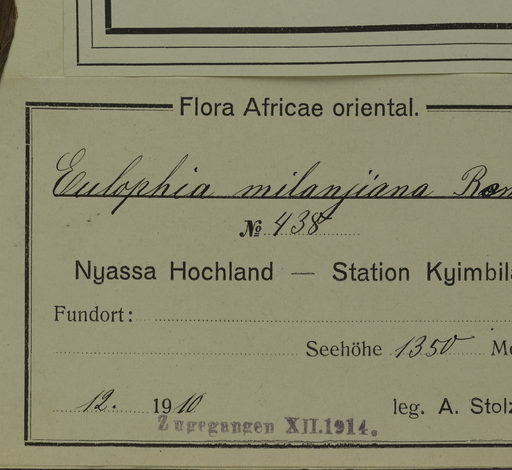 Flora Africae oriental.
Eulophia milanjiana Ren
№ 438
Nyassa Hochland — Station Kyimbila
Fundort:
Seehöhe 1350 Me
12. 1910 leg. A. Stolz
Zugegangen XII.1914.